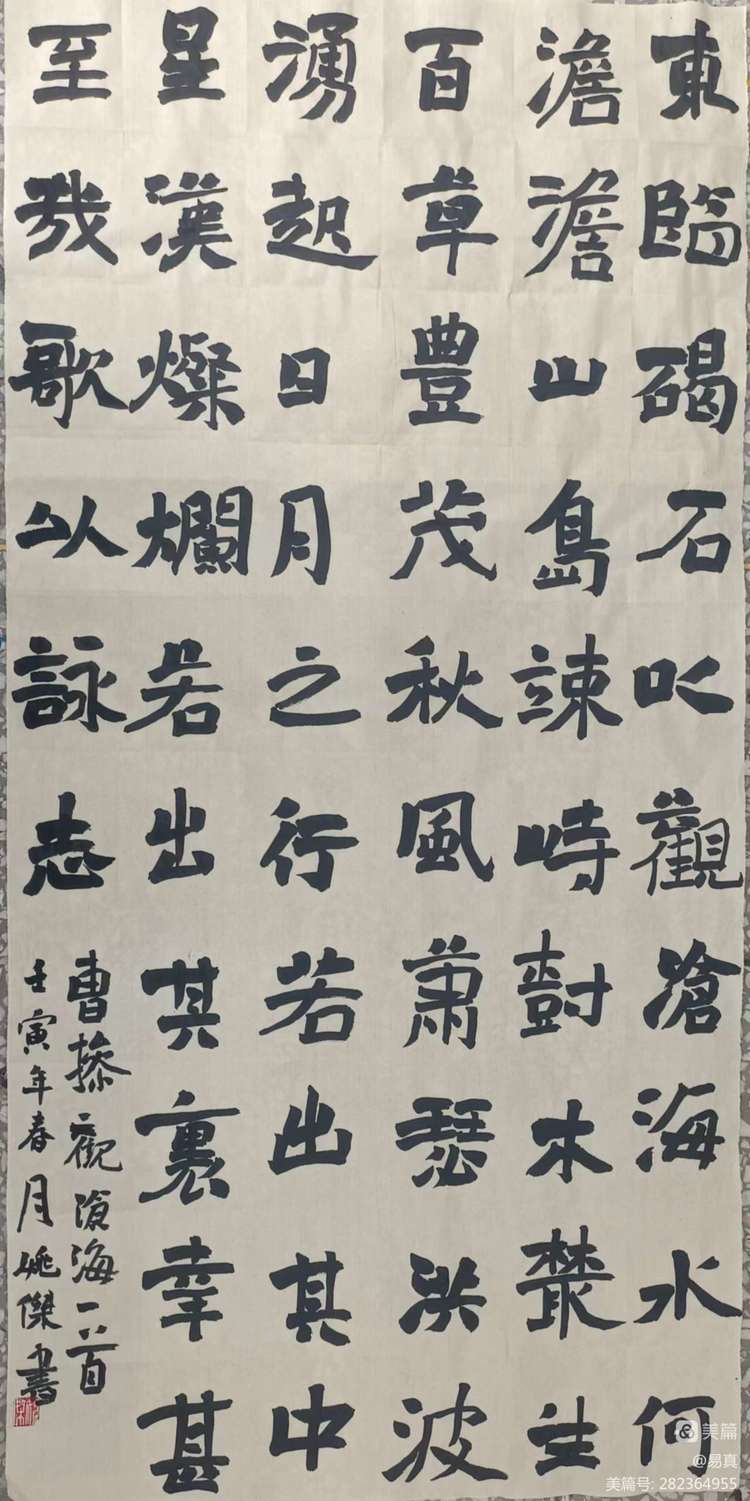 東臨碣石以觀滄海水何
澹澹山島竦峙樹木叢生
百草豐茂秋風蕭瑟洪波
湧起日月之行若出其中
星漢燦爛若出其裏幸甚
至哉歌以詠志
曹操觀滄海一首
壬寅年春月姚傑書
美篇
@易真
美篇号: 282364955